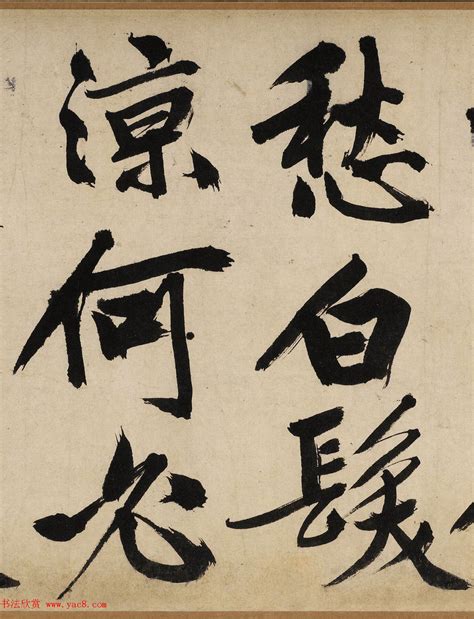 愁白髮
涼何必
书法欣赏 www.yac8.com